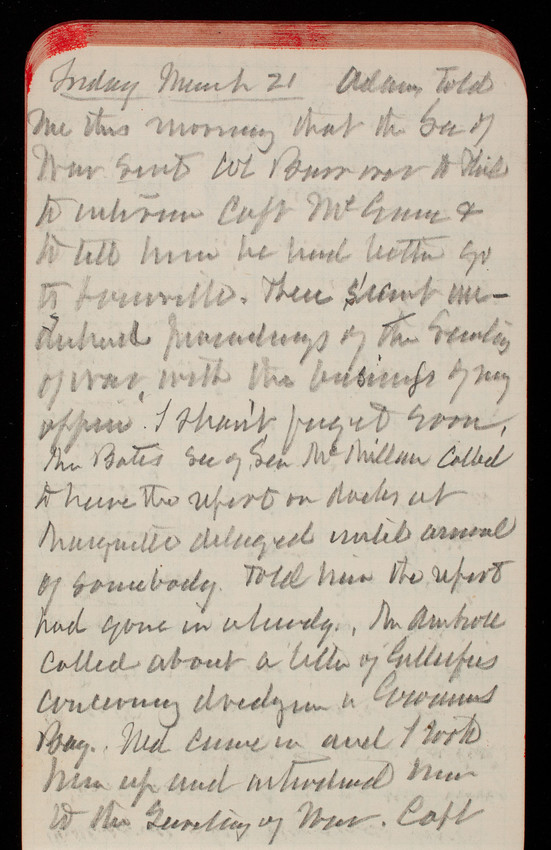 Friday March 21 Adams told
me this morning that the Sec of
War sent Col Barr over to Phil
to interview Capt McGunn &
to tell him he had better go
to Louisville. These secret un-
derhand proceedings of the Secretary
of War, with the business of my
office I shan't forget soon.
Mr Bates Sec of Sen McMillan called
to have the report on docks at
Marquette delayed until arrival
of somebody. Told him the report
had gone in already. Mr Ambrose
called about a letter of Gillespies
concerning dredging in Gowanus
Bay. Ned came in and I took
him up and introduced him
to the Secretary of War. Capt